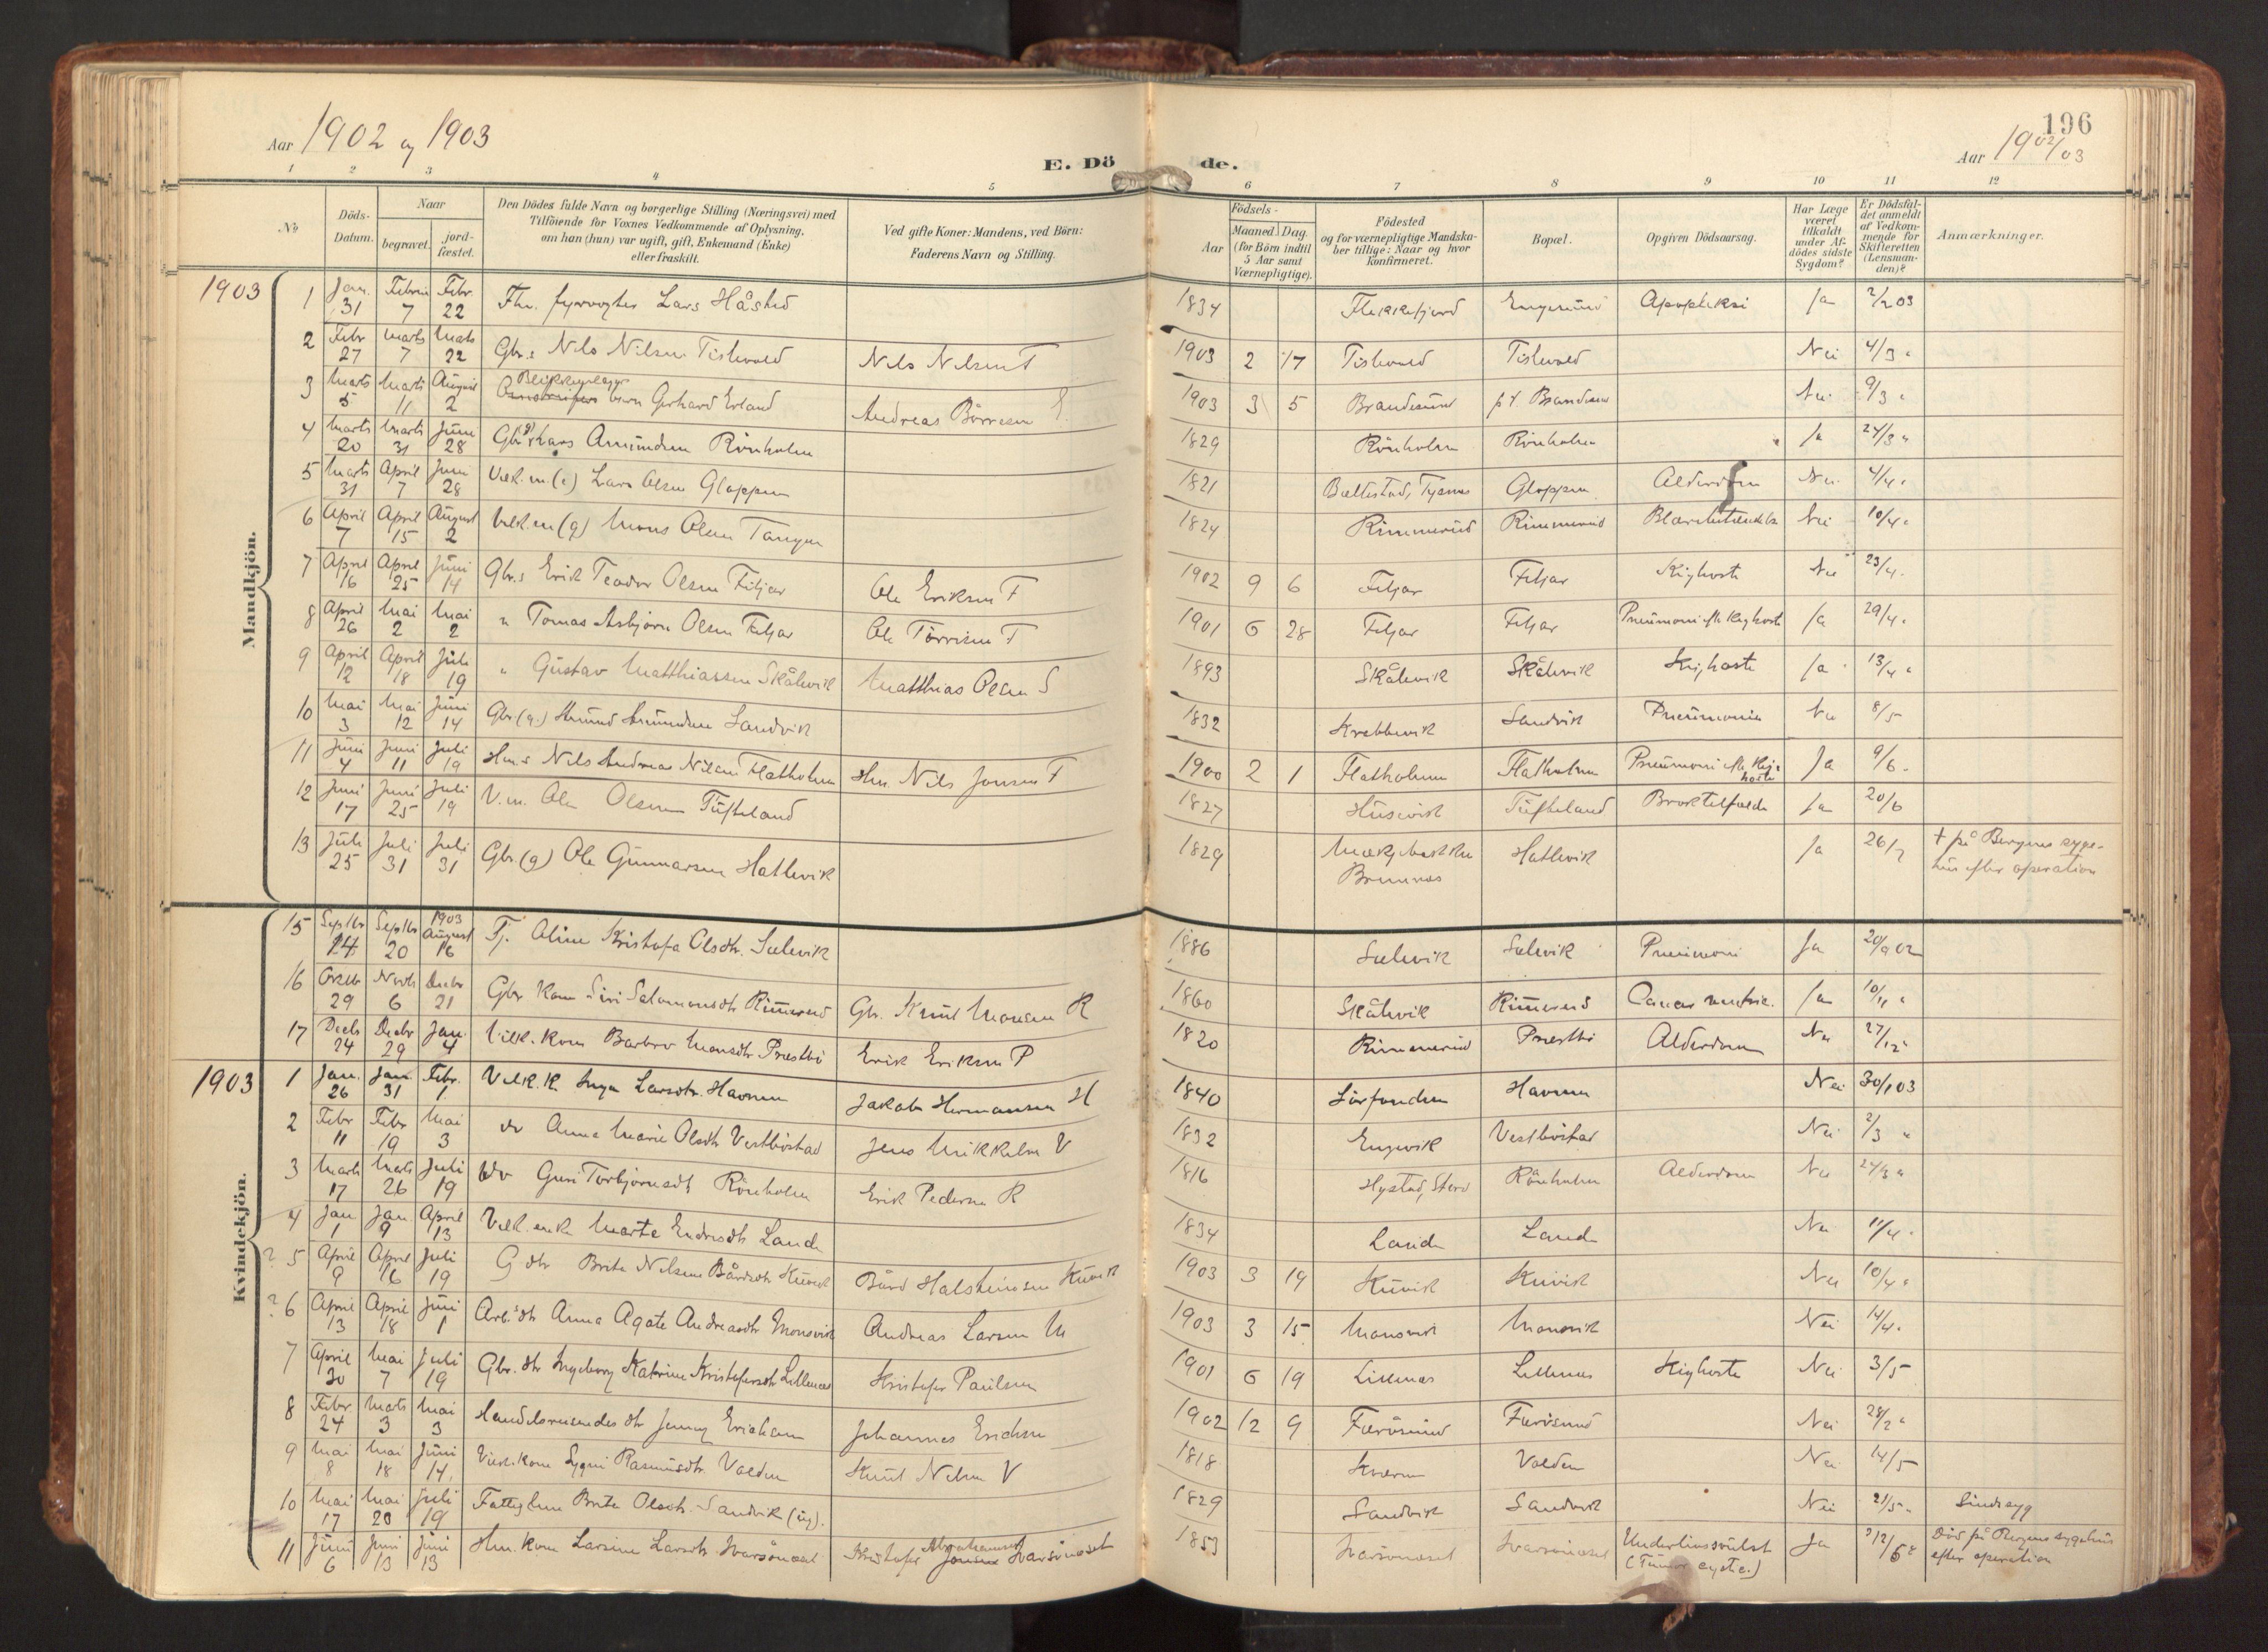 196
Aar 1902 og 1903
Aar 1902/03
E. Döde.
1 2 3 4 5 6 7 8 9 10 11 12
No
Döds-Datum.
Naar
begravet.
jord-fæstet.
Den Dödes fulde Navn og borgerlige Stilling (Næringsvei) med
Tilföiende for Voxnes Vedkommende af Oplysning,
om han (hun) var ugift, gift, Enkemand (Enke)
eller fraskilt.
Ved gifte Koner: Mandens, ved Börn:
Faderens Navn og Stilling.
Födsels-
Aar
Maaned. Dag.
(for Börn indtil
5 Aar samt
Værnepligtige).
Födested
og for værnepligtige Mandska-
ber tillige: Naar og hvor
konfirmeret.
Bopæl.
Opgiven Dödsaarsag.
Har Læge
været
tilkaldt
under Af-
dödes sidste
Sygdom?
Er Dödsfal-
det anmeldt
af Vedkom-
mende for
Skifteretten
(Lensman-
den)?
Anmærkninger.
Mandkjön.
1903 1 Jan. 31 Febru 7 Febr. 22 Fhv. fyrvogter Lars Håsted 1834 Flekkefjord Engesund Apopleksi Ja 2/2 03
2 Febr 27 Marts 7 Marts 22 Gbr.s Nils Nilsen Tislevold Nils Nilsen T 1903 2 17 Tislevold Tislevold Nei 4/3 "
3 Marts 5 Marts 11 August 2 barn Gerhard Erland Andreas Börresen E. 1903 3 5 Brandesund p.t. Brandesund Nei 9/3 "
4 Marts 20 Marts 31 Juni 28 Gbr (g) Lars Amundsen Rönholm 1829 Rönholm Rönholm Ja 24/3 "
5 Marts 31 April 7 Juni 28 Vilk.m. (e) Lars Olsen Gloppen 1821 Ballestad, Tysnes Gloppen Alderdom Nei 4/4 "
6 April 7 April 15 August 2 Vilk.m (g) Mons Olsen Tangen 1824 Rimmereid Rimmereid Nei 10/4 "
7 April 16 April 25 Juni 14 Gbr.s Erik Teodor Olsen Fitjar Ole Eriksen F 1902 9 6 Fitjar Fitjar Kighoste Nei 23/4.
8 April 26 Mai 2 Mai 2 " Tomas Asbjörn Olsen Fitjar Ole Törrisen F 1901 6 28 Fitjar Fitjar Pneumoni eft. Kighoste Ja 29/4 "
9 April 12 April 18 Juli 19 " Gustav Matthiassen Skålevik Matthias Olsen S 1893 Skålevik Skålevik Kighoste Ja 13/4 "
10 Mai 3 Mai 12 Juni 14 Gbr. (g.) Amund Amundsen Sandvik 1832 Krabbevik Sandvik Pneumonia Nei 8/5
11 Juni 4 Juni 11 Juli 19 Hm.s Nils Andreas Nilsen Flatholmen Hm. Nils Jonsen F 1900 2 1 Flatholmen Flatholmen Pneumoni eft. Kig-hoste Ja 9/6 "
12 Juni 17 Juni 25 Juli 19 V.m. Ole Olsen Tufteland 1827 Husevik Tufteland Broktilfælde Ja 20/6
13 Juli 25 Juli 31 Juli 31 Gbr. (g) Ole Gunnarsen Hatlevik 1829 Bremnes Hatlevik Ja 26/7 † på Bergens syge-
hus efter operation
Kvindekjön.
15 Septbr 14 Septbr 20 1903 August 16 Tj. Aline Kristofa Olsdtr. Sælevik 1886 Sælevik Sælevik Pneumoni Ja 20/9 02
16 Oktbr 29 Novb 6 Decbr 21 Gbr kone Siri Salomonsdtr Rimmereid Gbr. Knut Monsen R 1860 Skålevik Rimmereid Ja 10/11 "
17 Decb 24 Decbr 29 Jan. 4 Vilk. kone Barbro Monsdtr Præstbö Erik Eriksen P 1820 Rimmereid Præstbö Alderdom Nei 27/12 "
1903 1 Jan. 26 Jan. 31 Febr. 1 Vilk. k. Inga Larsdtr. Havnen Jakob Hermansen H 1840 Sörfonden Havnen Nei 30/1 03
2 Febr 11 Febr 19 Mai 3 do Anna Marie Olsdtr Vestböstad Jens Mikkelsen V 1832 Engevik Vestböstad Nei 2/3 "
3 Marts 17 Marts 26 Juli 19 do Guri Torbjörnsdtr Rönholm Erik Pedersen R 1816 Hystad, Stord Rönholm Alderdom Nei 24/3 "
4 Jan 1 Jan 9 April 13 Vilk. enke Marta Endresdtr Lande 1834 Lande Lande Nei 11/4 "
? 5 April 9 April 16 Juli 19 G dtr Brita Nilsine Bårdsdtr Kuvik Bård Halsteinsen Kuvik 1903 3 19 Kuvik Kuvik Nei 10/4 "
? 6 April 13 April 18 Juni 1 Arb.s dtr Anna Agate Andreasdtr Monsvik Andreas Larsen M 1903 3 15 Monsvik Monsvik Nei 14/4.
7 April 30 Mai 7 Juli 19 Gbr. dtr Ingeborg Katrine Kristofersdtr Lillenes Kristofer Paulsen 1901 6 19 Lillenes Lillenes Kighoste Nei 3/5
8 Febr. 24 Marts 3 Mai 3 Handelsreisendes dtr Jenny Erichsen Johannes Erichsen 1902 12 9 Færösund Færösund Nei 28/2 "
9 Mai 8 Mai 18 Juni 14. Vilk. kone Sygni Rasmusdtr. Volden Knut Nilsen V 1818 Kværn Volden Nei 14/5
10 Mai 17 Mai 20 Juli 19 Fattiglem Brita Olsdtr. Sandvik (ug). 1829 Sandvik Sandvik Nei 21/5 " Sindssyg
11 Juni 6 Juni 13 Juni 13 Hm. kone Larsine Larsdtr Ivarsönæset Kristofer Abrahamsen Jonsen Ivarsönæset 1853 Ivarsönæset Ivarsönæset Underlivssvulst
(Tumor cystic.) Ja 12/6 Död på Bergens sygehus
efter operation